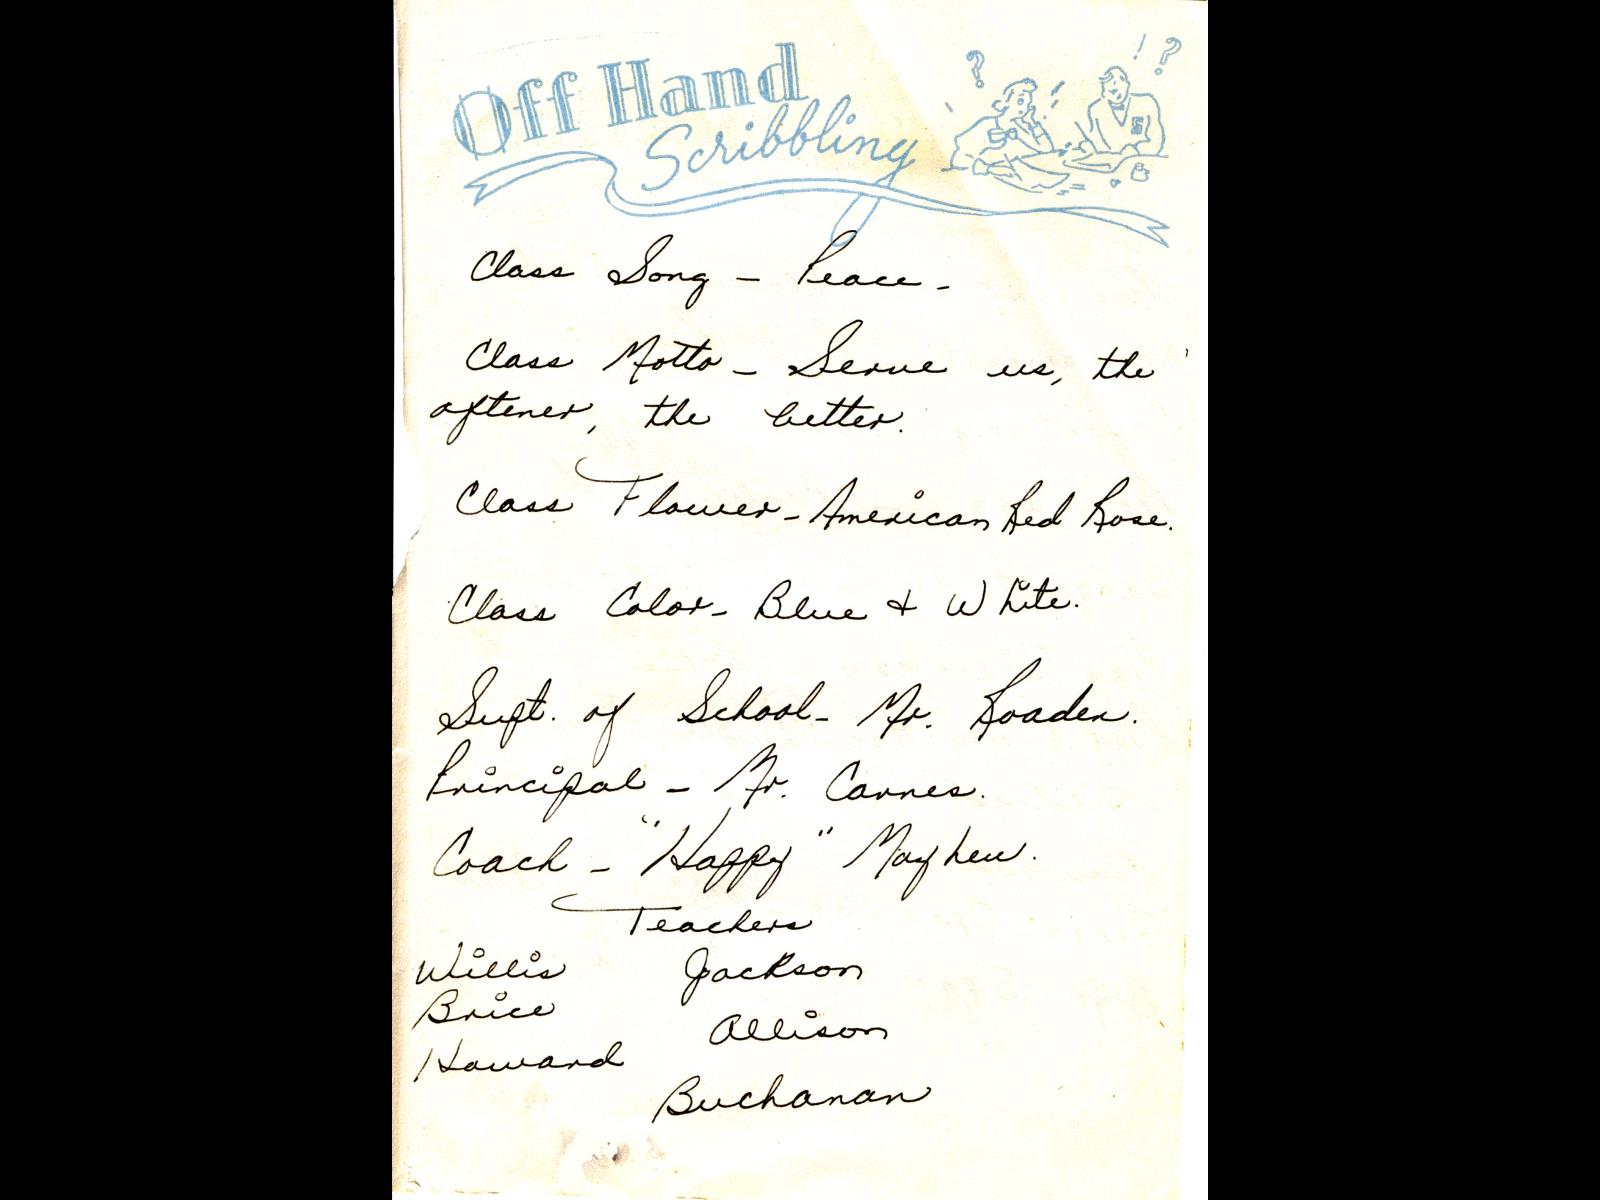 Off Hand
Scribbling
? ! ! ?
Class Song - Peace -
Class Motto - Serve us, the
oftener, the better.
Class Flower - American Red Rose.
Class Color - Blue & White.
Supt. of School - Mr. Roaden.
Principal - Mr. Carnes.
Coach - "Happy" Mayhew.
Teachers
Willis Jackson
Brice
Allison
Howard
Buchanan